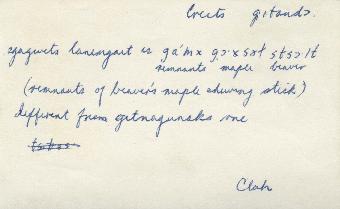 Crests gitands.
sgagwets lanemgait is ga'mx gə·xsət stsəlt
remnants maple beaver
(remnants of beaver's maple chewing stick)
different from gitnagunaks one
Clah